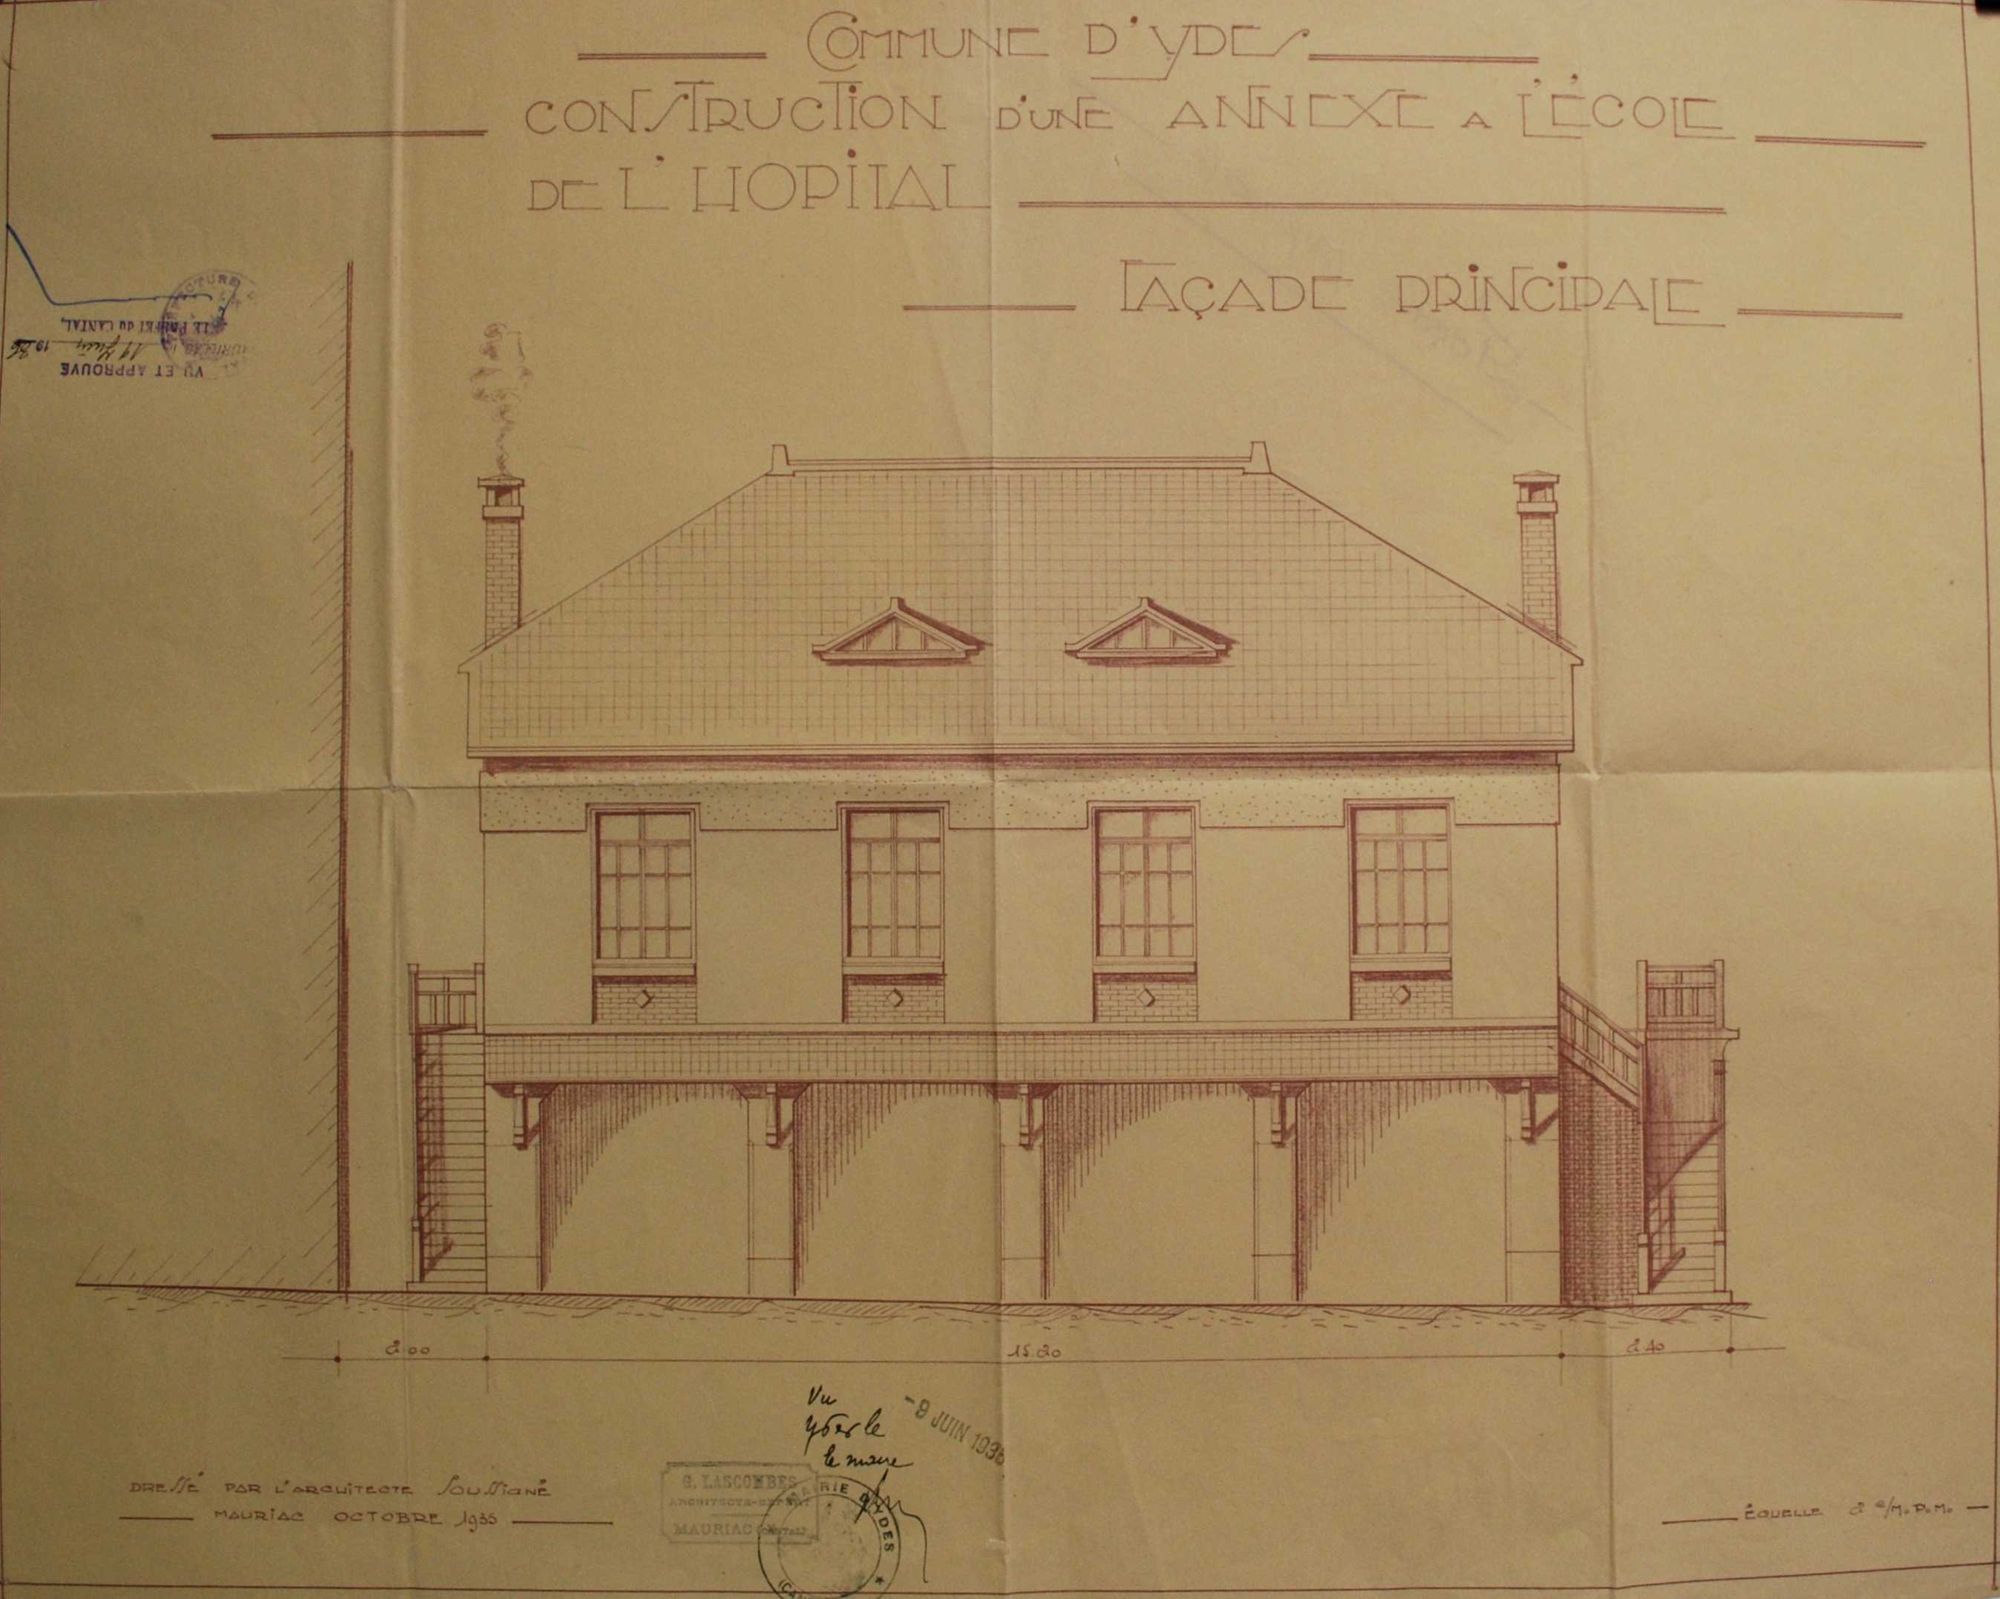 COMMUNE D'YDES
CONSTRUCTION D'UNE ANNEXE A L'ÉCOLE
DE L'HOPITAL
FAÇADE PRINCIPALE
VU ET APPROUVÉ
11 Juin 1936
LE PRÉFET DU CANTAL,
2.00
15.20
2.40
Vu
Ydes le
-9 JUIN 1936
le maire
DRESSÉ PAR L'ARCHITECTE SOUSSIGNÉ
MAURIAC OCTOBRE 1935
G. LASCOMBES
ARCHITECTE-EXPERT
MAURIAC (CANTAL)
MAIRIE D'YDES
ÉQUELLE 2 c/M. P. M.